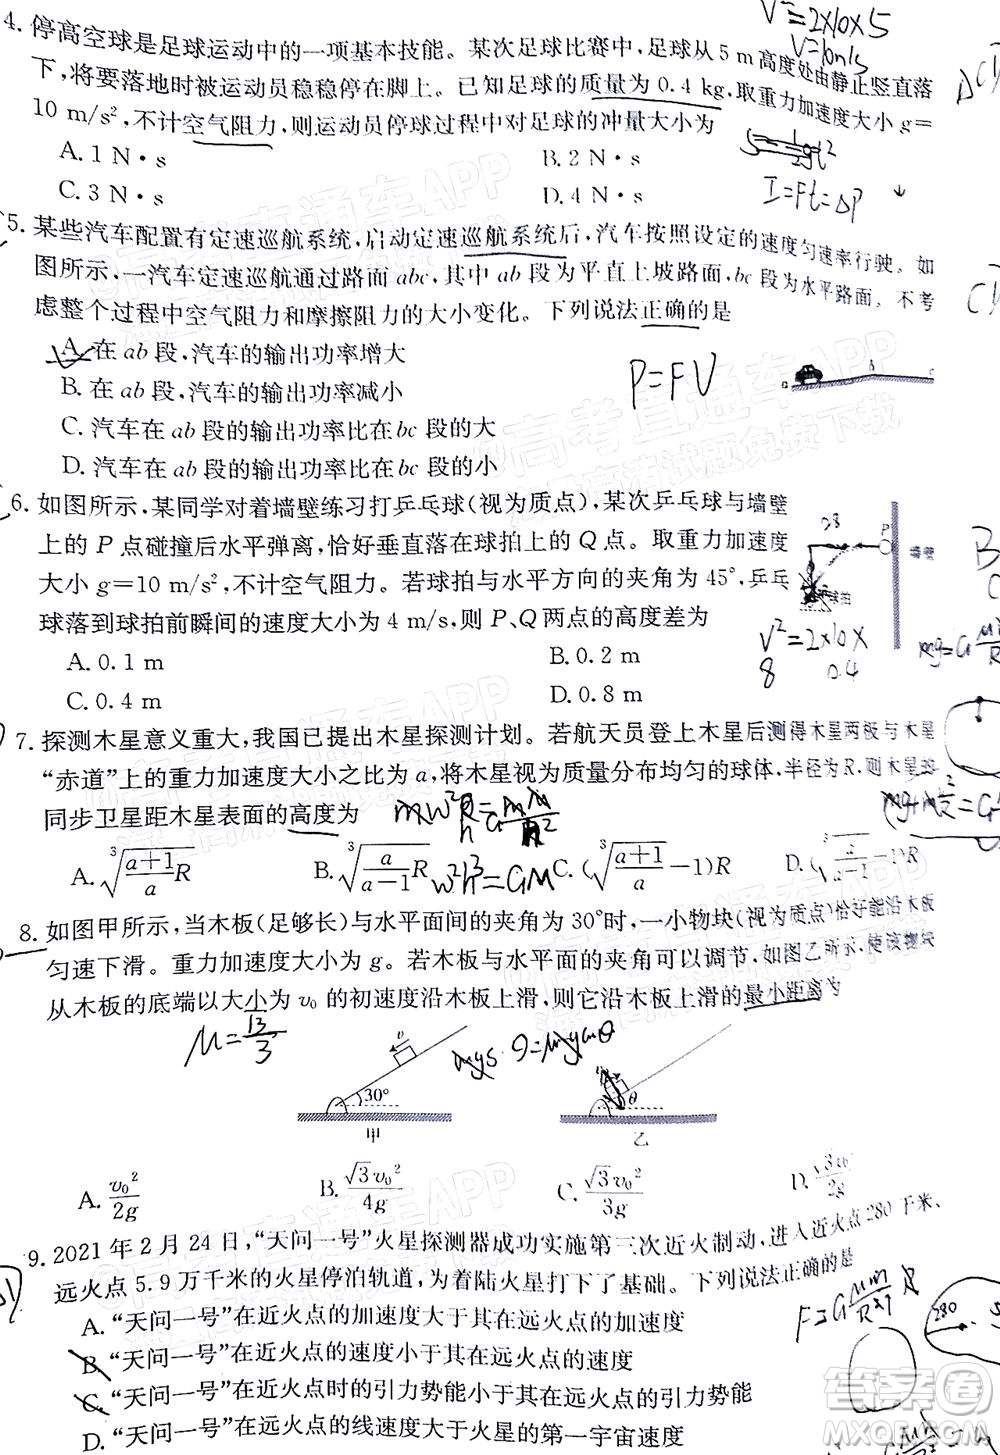 V²=2×10×5
V=10m/s
4. 停高空球是足球运动中的一项基本技能。某次足球比赛中,足球从5 m高度处由静止竖直落
下,将要落地时被运动员稳稳停在脚上。已知足球的质量为0.4 kg,取重力加速度大小g=
10 m/s²,不计空气阻力,则运动员停球过程中对足球的冲量大小为
A. 1 N·s B. 2 N·s
C. 3 N·s D. 4 N·s
I=Ft=ΔP
5. 某些汽车配置有定速巡航系统,启动定速巡航系统后,汽车按照设定的速度匀速率行驶。如
图所示,一汽车定速巡航通过路面abc,其中ab段为平直上坡路面,bc段为水平路面。不考
虑整个过程中空气阻力和摩擦阻力的大小变化。下列说法正确的是
A. 在ab段,汽车的输出功率增大
B. 在ab段,汽车的输出功率减小
C. 汽车在ab段的输出功率比在bc段的大
D. 汽车在ab段的输出功率比在bc段的小
P=FV
6. 如图所示,某同学对着墙壁练习打乒乓球(视为质点),某次乒乓球与墙壁
上的P点碰撞后水平弹离,恰好垂直落在球拍上的Q点。取重力加速度
大小g=10 m/s²,不计空气阻力。若球拍与水平方向的夹角为45°,乒乓
球落到球拍前瞬间的速度大小为4 m/s,则P、Q两点的高度差为
A. 0.1 m B. 0.2 m
C. 0.4 m D. 0.8 m
P
墙壁
球拍
0.8
V²=2×10×
8 0.4
7. 探测木星意义重大,我国已提出木星探测计划。若航天员登上木星后测得木星两极与木星
“赤道”上的重力加速度大小之比为a,将木星视为质量分布均匀的球体,半径为R,则木星的
同步卫星距木星表面的高度为
A. ∛((a+1)/a) R B. ∛(a/(a-1)) R C. (∛((a+1)/a)-1)R D. (∛(a/(a-1))-1)R
W²h³=GM
8. 如图甲所示,当木板(足够长)与水平面间的夹角为30°时,一小物块(视为质点)恰好能沿木板
匀速下滑。重力加速度大小为g。若木板与水平面的夹角可以调节,如图乙所示,使该物块
从木板的底端以大小为v₀的初速度沿木板上滑,则它沿木板上滑的最小距离为
v
30°
甲
θ
乙
A. v₀²/2g B. √3v₀²/4g C. √3v₀²/3g D. √3v₀²/2g
9. 2021年2月24日,“天问一号”火星探测器成功实施第三次近火制动,进入近火点280千米、
远火点5.9万千米的火星停泊轨道,为着陆火星打下了基础。下列说法正确的是
A. “天问一号”在近火点的加速度大于其在远火点的加速度
B. “天问一号”在近火点的速度小于其在远火点的速度
C. “天问一号”在近火点时的引力势能小于其在远火点的引力势能
D. “天问一号”在远火点的线速度大于火星的第一宇宙速度
280
答案卷
MXQE.COM